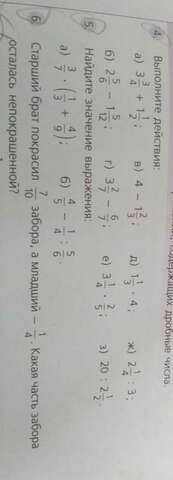 содержащих дробные числа.
4. Выполните действия:
а) 3 3/4 + 1 1/2; в) 4 − 1 2/3; д) 1 1/3 · 4; ж) 2 1/4 : 3;
б) 2 5/6 − 1 5/12; г) 3 2/7 − 6/7; е) 3 1/4 · 2/5; з) 20 : 2 1/2.
5. Найдите значение выражения:
а) 3/7 · (1/3 + 4/9); б) 4/5 − 1/4 : 5/6.
6. Старший брат покрасил 7/10 забора, а младший − 1/4. Какая часть забора
осталась непокрашенной?